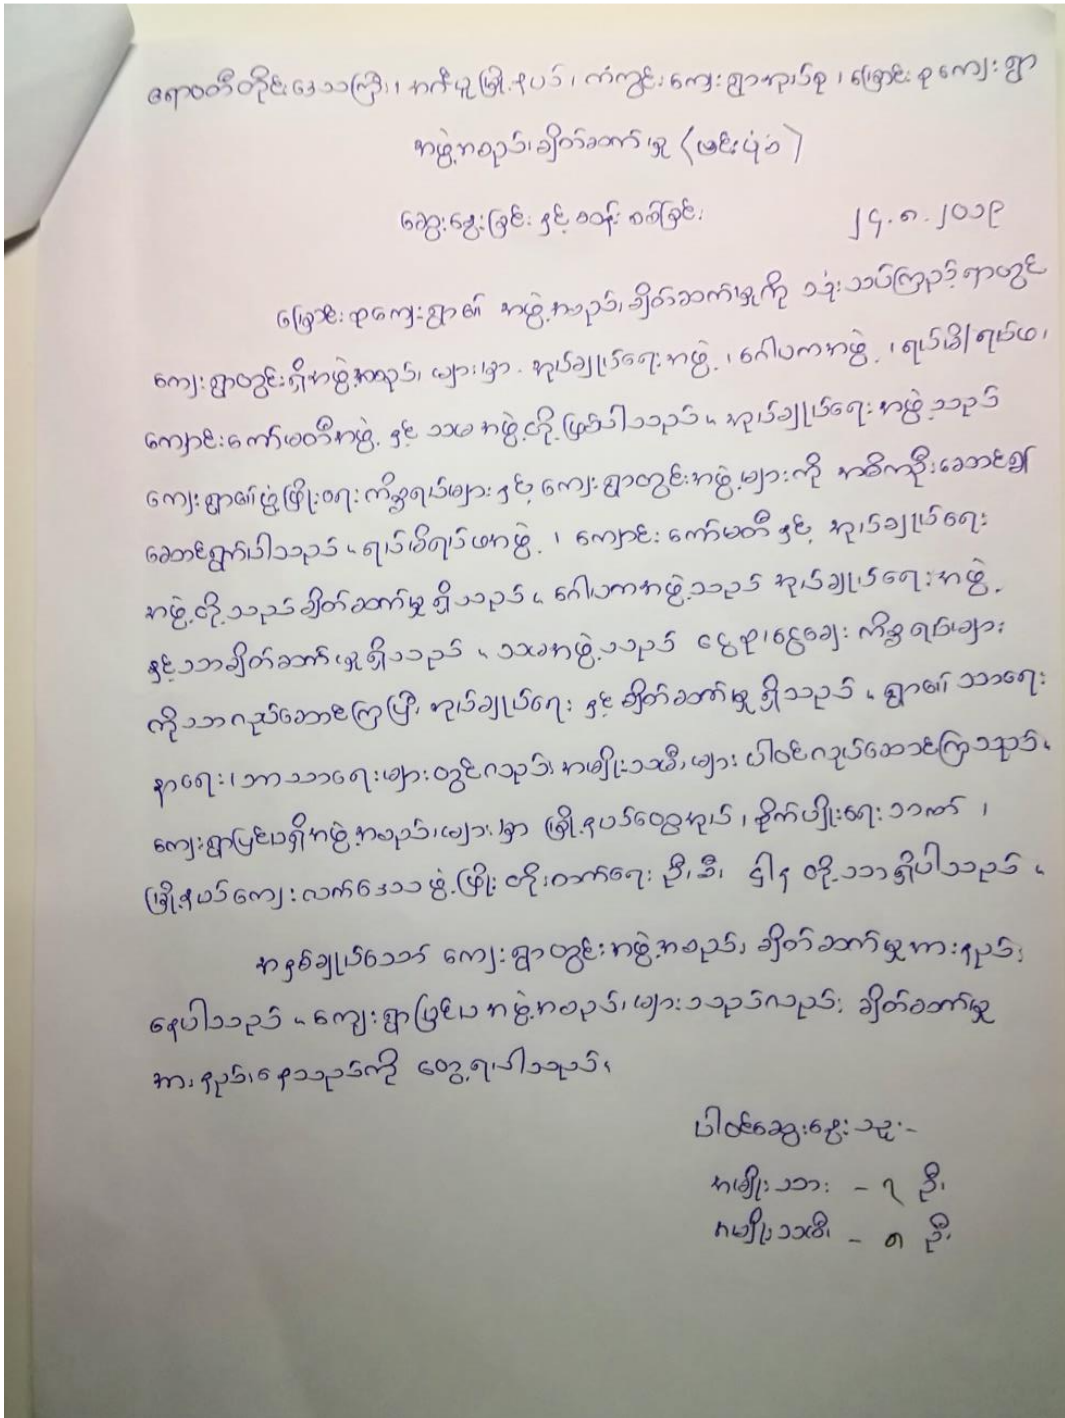 ဧရာဝတီတိုင်းဒေသကြီး၊ အင်္ဂပူမြို့နယ်၊ ကံကွင်းကျေးရွာအုပ်စု၊ မြောင်းစုကျေးရွာ
အဖွဲ့အစည်းချိတ်ဆက်မှု (ဗျင်းပုံစံ)
ဆွေးနွေးခြင်း နှင့် စိစစ်ခြင်း
၂၄.၈.၂၀၁၉
မြောင်းစုကျေးရွာ၏ အဖွဲ့အစည်းချိတ်ဆက်မှုကို သုံးသပ်ကြည့်ရာတွင်
ကျေးရွာတွင်းရှိအဖွဲ့အစည်းများမှာ အုပ်ချုပ်ရေးအဖွဲ့၊ ဂေါပကအဖွဲ့၊ ရပ်မိ/ရပ်ဖ၊
ကျောင်းကော်မတီအဖွဲ့ နှင့် သမအဖွဲ့တို့ဖြစ်ပါသည်။ အုပ်ချုပ်ရေးအဖွဲ့သည်
ကျေးရွာ၏ဖွံ့ဖြိုးရေးကိစ္စရပ်များနှင့် ကျေးရွာတွင်းအဖွဲ့များကို အဓိကဦးဆောင်၍
ဆောင်ရွက်ပါသည်။ ရပ်မိရပ်ဖအဖွဲ့၊ ကျောင်းကော်မတီနှင့် အုပ်ချုပ်ရေး
အဖွဲ့တို့သည်ချိတ်ဆက်မှုရှိသည်။ ဂေါပကအဖွဲ့သည် အုပ်ချုပ်ရေးအဖွဲ့
နှင့်သာချိတ်ဆက်မှုရှိသည်။ သမအဖွဲ့သည် ငွေစုငွေချေးကိစ္စရပ်များ
ကိုသာလုပ်ဆောင်ကြပြီး အုပ်ချုပ်ရေးနှင့် ချိတ်ဆက်မှုရှိသည်။ ရွာ၏သာရေး
နာရေး၊ ဘာသာရေးများတွင်လည်းအမျိုးသမီးများ ပါဝင်လုပ်ဆောင်ကြသည်။
ကျေးရွာပြင်ပရှိအဖွဲ့အစည်းများမှာ မြို့နယ်ထွေအုပ်၊ စိုက်ပျိုးရေးဘဏ်၊
မြို့နယ်ကျေးလက်ဒေသဖွံ့ဖြိုးတိုးတက်ရေးဦးစီးဌာနတို့သာရှိပါသည်။
အနှစ်ချုပ်သော် ကျေးရွာတွင်းအဖွဲ့အစည်းချိတ်ဆက်မှုအားနည်း
နေပါသည်။ ကျေးရွာပြင်ပအဖွဲ့အစည်းများသည်လည်း ချိတ်ဆက်မှု
အားနည်းနေသည်ကို တွေ့ရပါသည်။
ပါဝင်ဆွေးနွေးသူ-
အမျိုးသား - ၇ ဦး
အမျိုးသမီး - ၈ ဦး